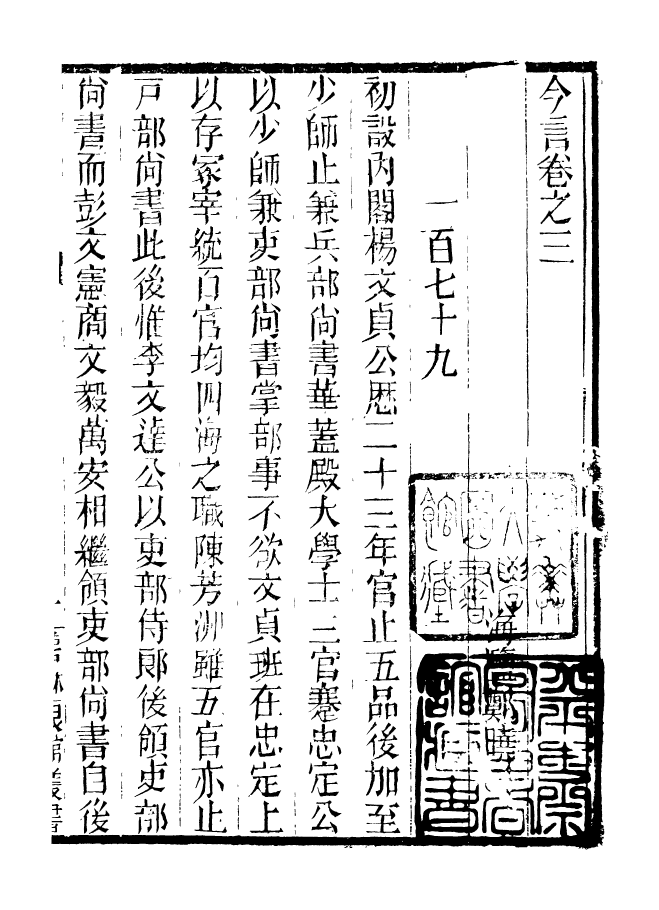 今言卷之三
海鹽鄭曉著
一百七十九
初設內閣楊文貞公歷二十三年官止五品後加至
少師止兼兵部尚書華蓋殿大學士三官蹇忠定公
以少師兼吏部尚書掌部事不欲文貞班在忠定上
以存冢宰統百官均四海之職陳芳洲雖五官亦止
戸部尚書此後惟李文達公以吏部侍郎後領吏部
尚書而彭文憲商文毅萬安相繼領吏部尚書自後